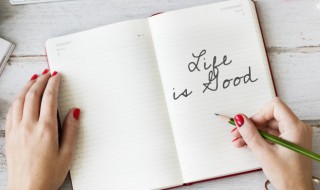 Life
is Good